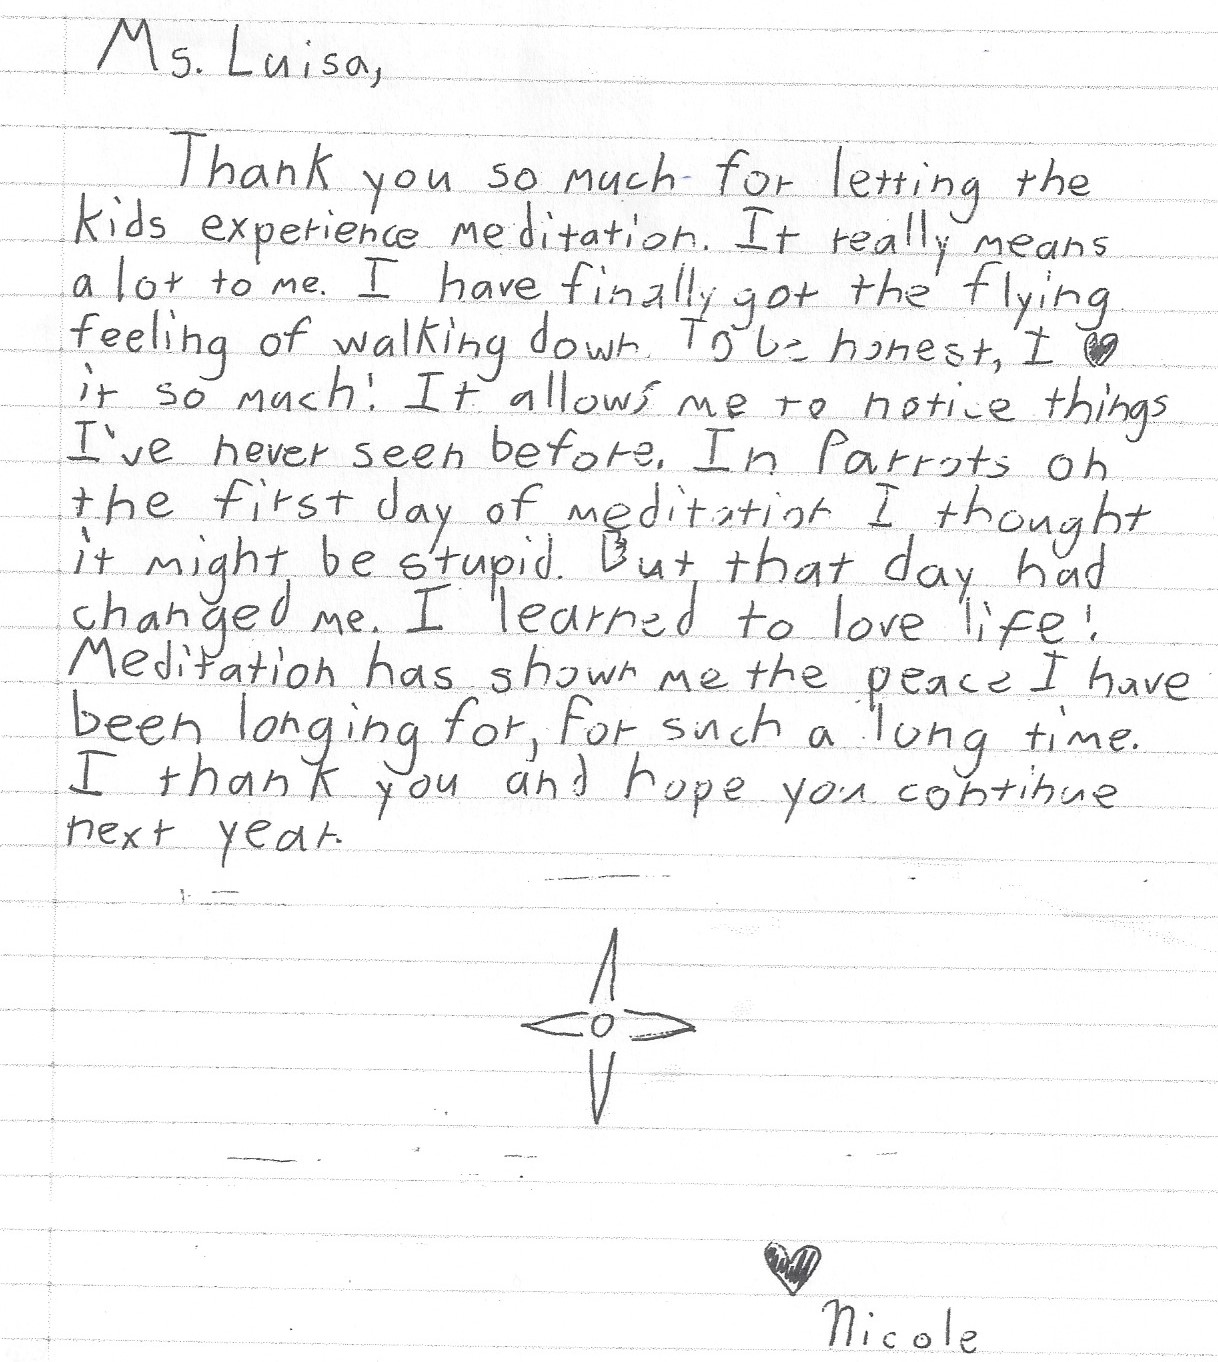 Ms. Luisa,
Thank you so much for letting the
kids experience meditation. It really means
a lot to me. I have finally got the flying
feeling of walking down. To be honest, I ♥
it so much! It allows me to notice things
I've never seen before. In Parrots on
the first day of meditation I thought
it might be stupid. But that day had
changed me. I learned to love life!
Meditation has shown me the peace I have
been longing for, for such a long time.
I thank you and hope you continue
next year.
♥
Nicole